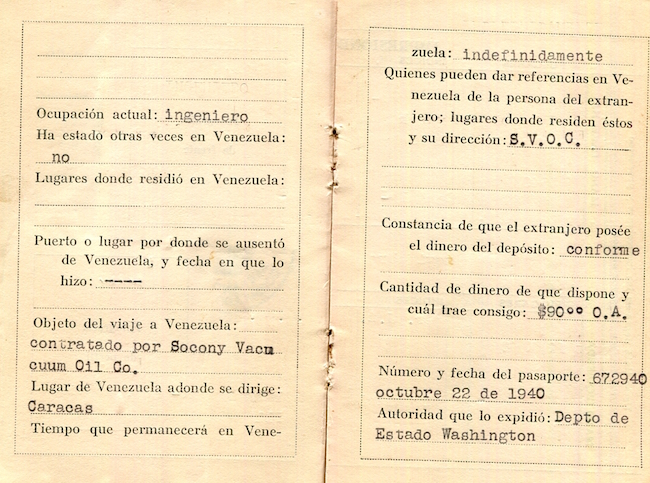 Ocupación actual: ingeniero
Ha estado otras veces en Venezuela:
no
Lugares donde residió en Venezuela:
Puerto o lugar por donde se ausentó
de Venezuela, y fecha en que lo
hizo: ----
Objeto del viaje a Venezuela:
contratado por Socony Vacu
cuum Oil Co.
Lugar de Venezuela adonde se dirige:
Caracas
Tiempo que permanecerá en Vene-
zuela: indefinidamente
Quienes pueden dar referencias en Ve-
nezuela de la persona del extran-
jero; lugares donde residen éstos
y su dirección: S.V.O.C.
Constancia de que el extranjero posée
el dinero del depósito: conforme
Cantidad de dinero de que dispone y
cuál trae consigo: $90°° O.A.
Número y fecha del pasaporte: 672940
octubre 22 de 1940
Autoridad que lo expidió: Depto de
Estado Washington